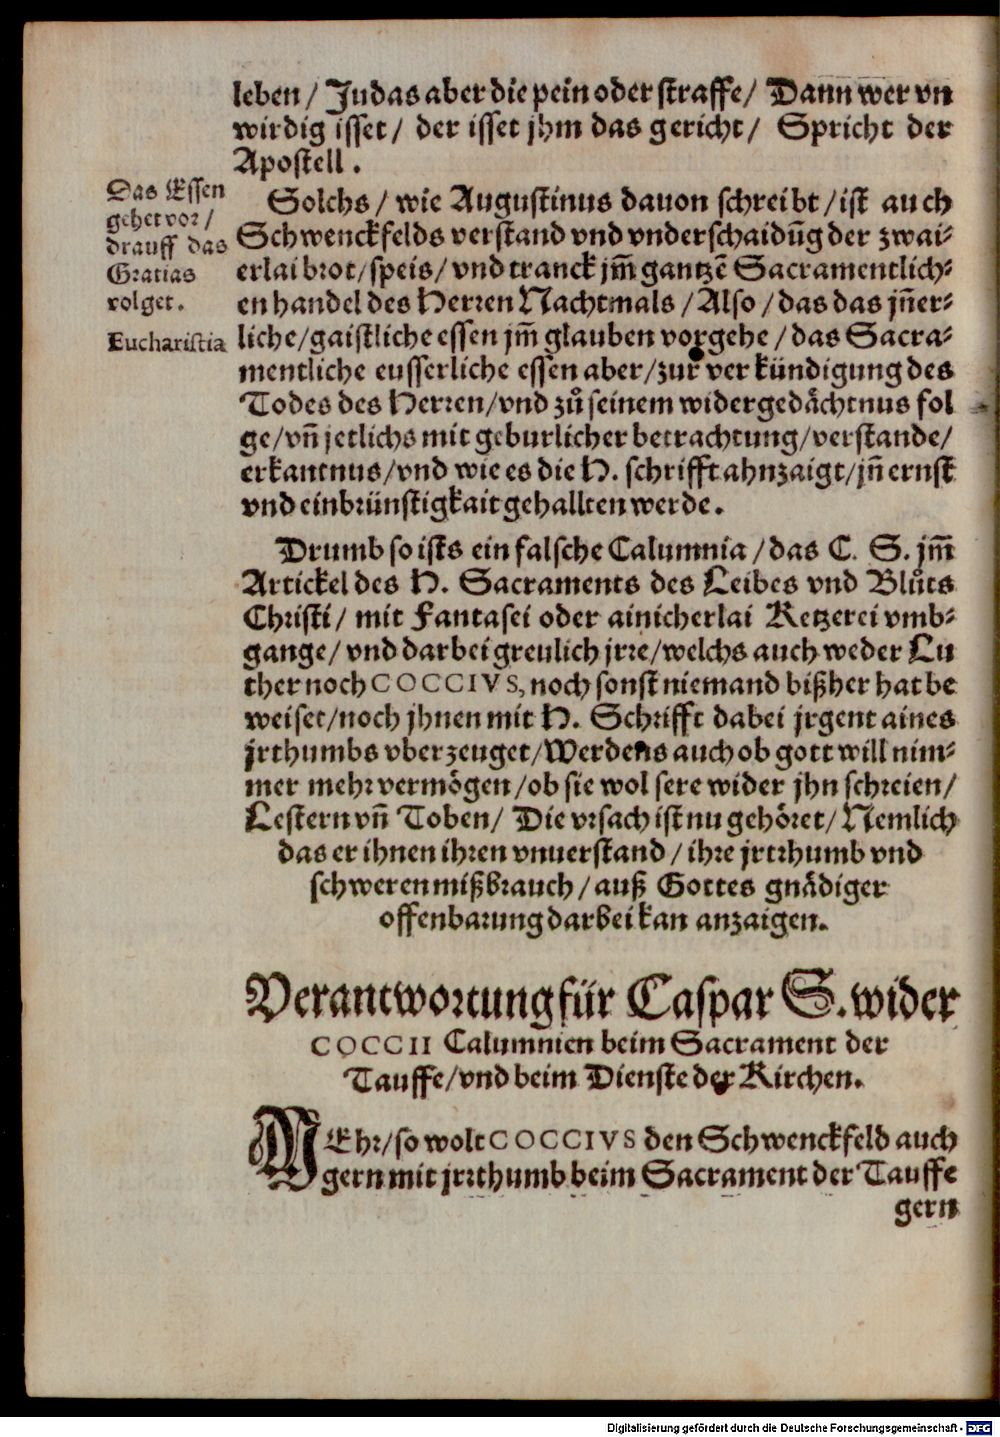 leben / Judas aber die pein oder straffe / Dann wer vn
wirdig isset / der isset jhm das gericht / Spricht der
Apostell .
Das Essen
gehet vor /
drauff das
Gratias
volget .
Eucharistia
Solchs / wie Augustinus dauon schreibt / ist auch
Schwenckfelds verstand vnd vnderschaidūg der zwai-
erlai brot / speis / vnd tranck jm̄ gantzē Sacramentlich-
en handel des Herren Nachtmals / Also / das das jn̄er-
liche / gaistliche essen jm̄ glauben vorgehe / das Sacra-
mentliche eusserliche essen aber / zur verkündigung des
Todes des Herren / vnd zů seinem widergedächtnus fol
ge / vn̄ jetlichs mit geburlicher betrachtung / verstande /
erkantnus / vnd wie es die H. schrifft ahnzaigt / jn̄ ernst
vnd einbrünstigkait gehallten werde .
Drumb so ists ein falsche Calumnia / das C. S. jm̄
Artickel des H. Sacraments des Leibes vnd Blůts
Christi / mit Fantasei oder ainicherlai Ketzerei vmb-
gange / vnd darbei greulich jrre / welchs auch weder Lu
ther noch COCCIVS, noch sonst niemand bißher hat be
weiset / noch jhnen mit H. Schrifft dabei jrgent aines
jrthumbs vberzeuget / Werdens auch ob gott will nim-
mer mehr vermögen / ob sie wol sere wider jhn schreien /
Lestern vn̄ Toben / Die vrsach ist nu gehöret / Nemlich
das er ihnen ihren vnuerstand / ihre jrrthumb vnd
schweren mißbrauch / auß Gottes gnädiger
offenbarung darbei kan anzaigen.
Verantwortung für Caspar S. wider
COCCII Calumnien beim Sacrament der
Tauffe / vnd beim Dienste der Kirchen.
MEhr / so wolt COCCIVS den Schwenckfeld auch
gern mit jrrthumb beim Sacrament der Tauffe
gern
Digitalisierung gefördert durch die Deutsche Forschungsgemeinschaft - DFG